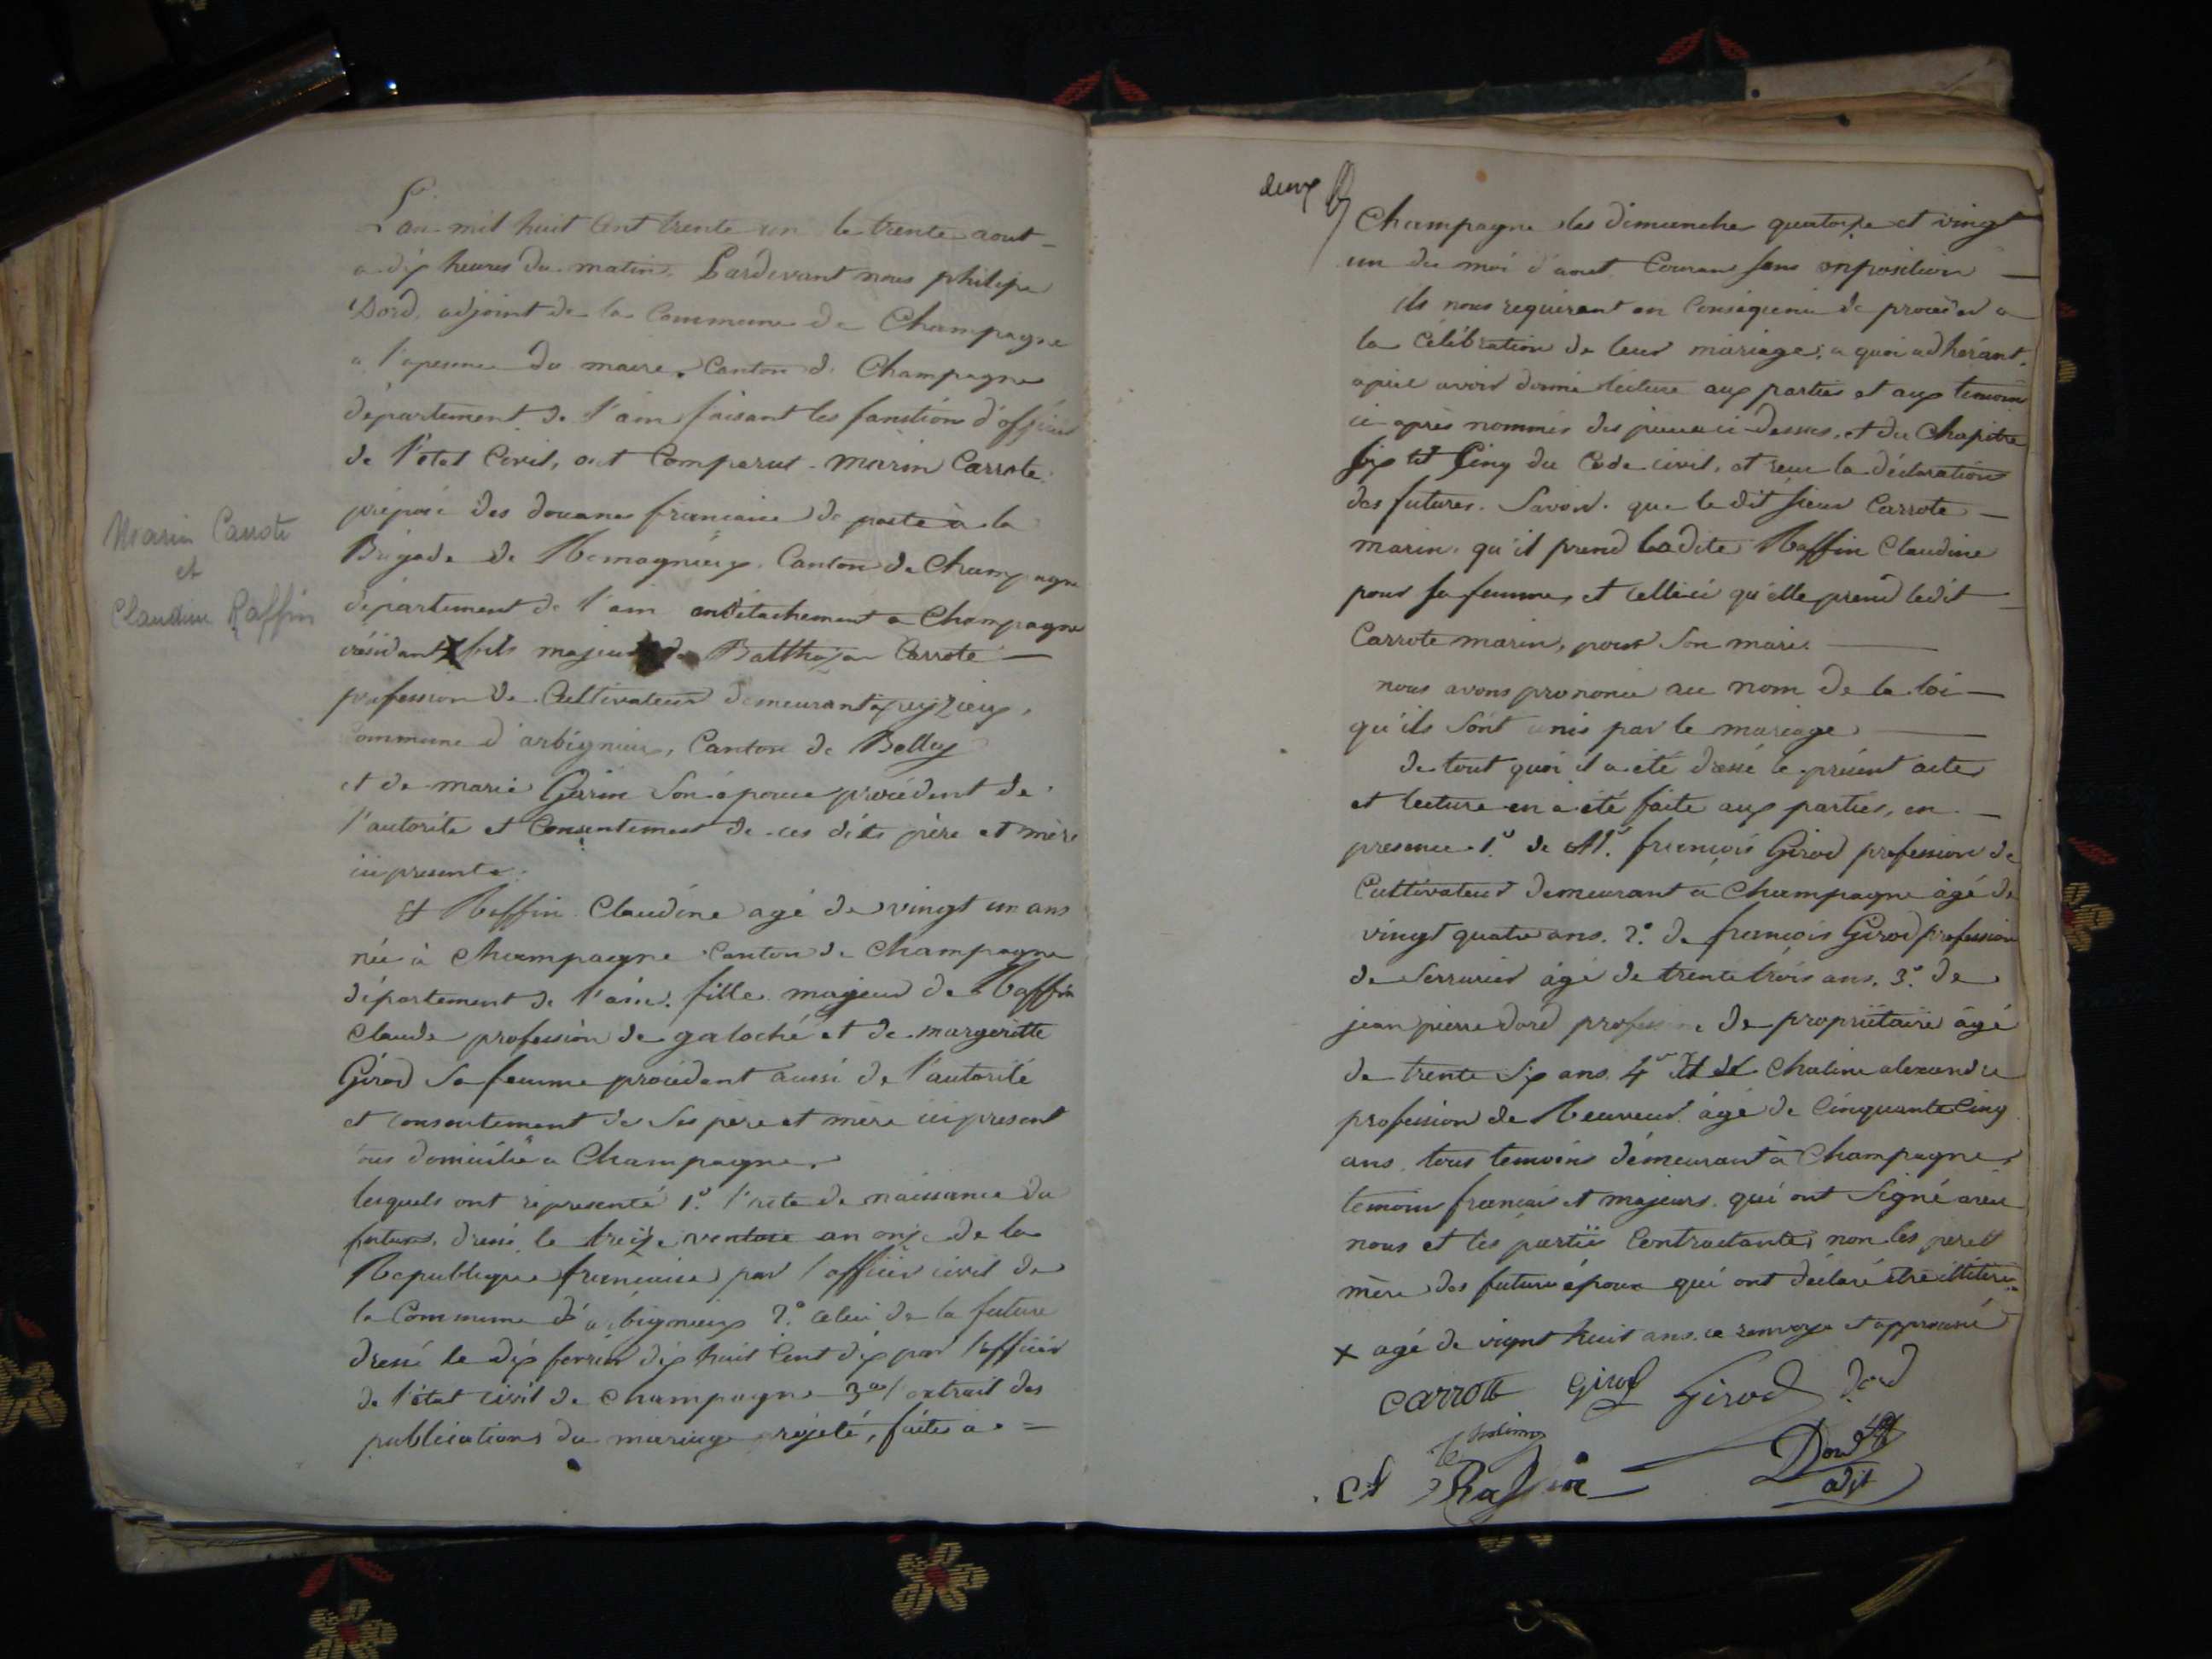 Marin Carrote
et
Claudine Raffin
L'an mil huit cent trente un le trente aout
a dix heures du matin. Pardevant nous philipe
Dord, adjoint de la Commune de Champagne
a l' du maire, Canton de Champagne
département de l'ain faisant les fonstions d'officier
de l'etat Civil, ont Comparut Marin Carrote
préposé des douanes francaise de poste à la
Brigade de Canton de Champagne
département de l'ain en détachement a Champagne
résidant X fils majeur de Balthazar Carrote
profession de Cultivateur demeurant a peyzieux,
Commune d'arbignieu, Canton de Belley
et de marie Gerin Son épouse procédent de
l'autorité et Consentement de ces dits père et mère
ici presents
Et Raffin Claudine agé de vingt un ans
née à Champagne Canton de Champagne
département de l'ain. fille majeur de Raffin
Claude profession de galoché et de margeritte
Girod Sa femme procédant aussi de l'autorité
et consentement de Ses père et mère ici présent
tous domicilié a Champagne
lesquels ont représenté 1.º l'acte de naissance du
futur, dressé le treize ventose an onze de la
Republique francaise par l'officier civil de
la Commune d'arbignieux 2.º celui de la future
dressé le dix fevrier dix huit Cent dix par l'officier
de l'état civil de Champagne 3.º l'extrait des
publications du mariage projeté, faites a =
deux
Champagne les dimanches quatorze et vingt
un du moi d'aout Courant sans opposition
ils nous requirent en Conséquence de procéder a
la Célébration de leur mariage, a quoi adhérant.
après avoir donné lecture aux parties et aux temoins
ci-après nommés des pièces ci-dessus, et du Chapitre
six tit Cinq du Code civil, et recu la déclaration
des futures. Savoir. que le dit sieur Carrote
marin, qu'il prend ladite Raffin Claudine
pour sa femme, et celle-ci qu'elle prend ledit
Carrote marin, pour Son mari.
nous avons prononcé au nom de la loi
qu'ils Sont unis par le mariage
de tout quoi il a été dressé le présent acte
et lecture en a été faite aux parties, en
presence 1.º de Mr. francois Girod profession de
Cultivateur demeurant à Champagne âgé de
vingt quatre ans. 2.º de francois Girod profession
de Serrurier âgé de trente trois ans. 3.º de
jean pierre dord profession de propriétaire âgé
de trente Six ans. 4º Chaline alexandre
profession de âgé de Cinquante Cinq
ans. tous temoins démeurant à Champagne
temoins francais et majeurs. qui ont Signé avec
nous et les partie Contractantes non les père et
mère des futurs époux qui ont déclaré être illitéres
X agé de vignt huit ans. ce renvoye et approuvé
carrotte Girod Girod dord
Chaline
Cd Raffin Dord
adjt